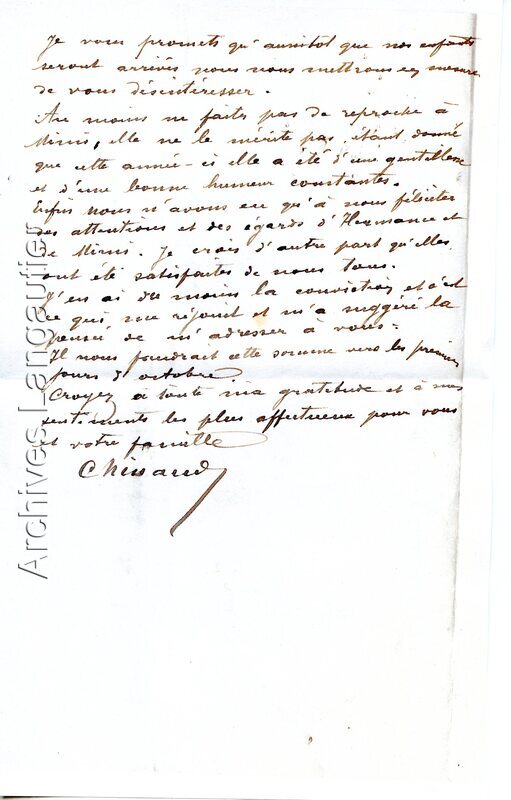 Je vous promets qu'aussitot que nos enfants
seront arrivés nous nous mettrons en mesure
de vous désintéresser.
Au moins ne faites pas de reproche à
Mimi, elle ne le mérite pas, étant donné
que cette année-ci elle a été d'une gentillesse
et d'une bonne humeur constantes.
Enfin nous n'avons eu qu'à nous féliciter
des attentions et des égards d'Hermance et
de Mimi. Je crois d'autre part qu'elles
ont été satisfaites de nous tous.
J'en ai du moins la conviction et c'est
ce qui me réjouit et m'a suggéré la
pensée de m'adresser à vous.
Il nous faudrait cette somme vers les premiers
jours d'octobre.
Croyez à toute ma gratitude et à mes
sentiments les plus affectueux pour vous
et votre famille
Archives Langautier